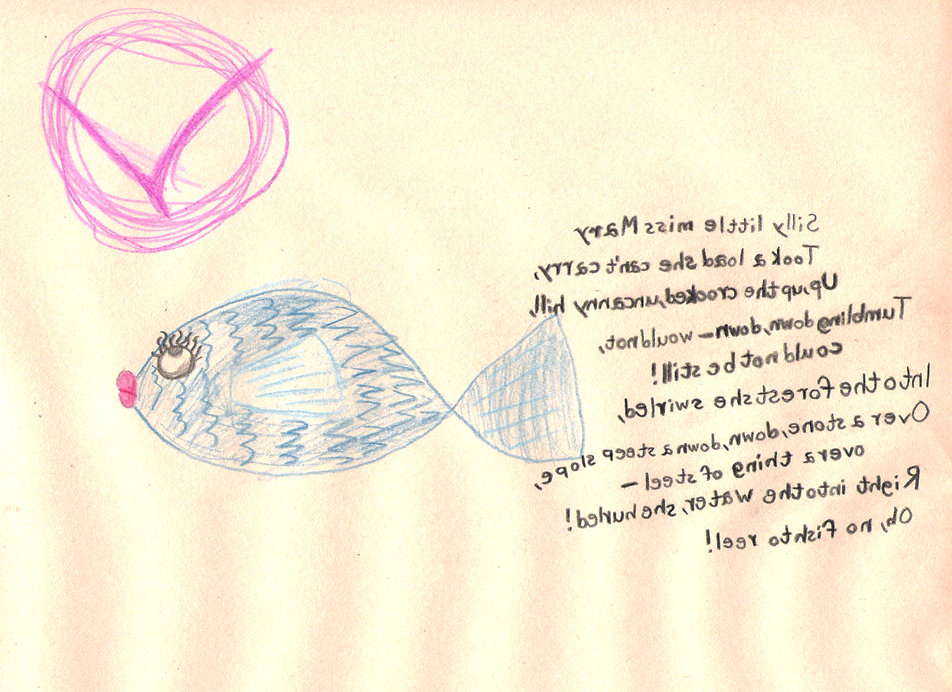 Silly little miss Mary
Took a load she can't carry,
Up, up the crooked, uncanny hill,
Tumbling down, down — would not,
could not be still!
Into the forest she swirled,
Over a stone, down, down a steep slope,
over a thing of steel —
Right into the water, she hurled!
Oh, no fish to reel!